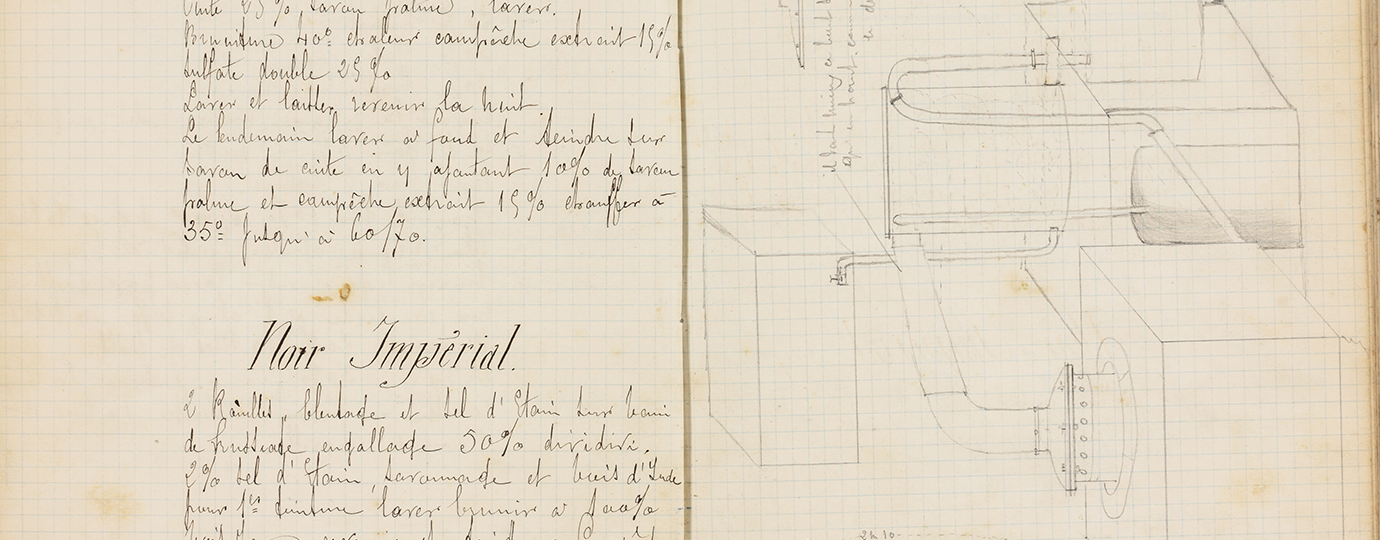 Cuite 25 %, savon palme, laver.
Bruniture 40º chaleur campêche extrait 15%
sulfate double 25 %
Laver et laisser revenir la nuit.
Le lendemain laver à fond et teindre sur
savon de cuite en y ajoutant 10% de savon
palme et campêche extrait 15 % chauffer à
35º jusqu'à 60/70.
Noir Impérial.
2 Rouilles, bleutage et sel d'Etain sur bain
de engallage 50% dividivi.
2% sel d'Etain, savonnage et bois d'Inde
pour 1re teinture laver brunir à 100%
il faut
en haut
2 h 10